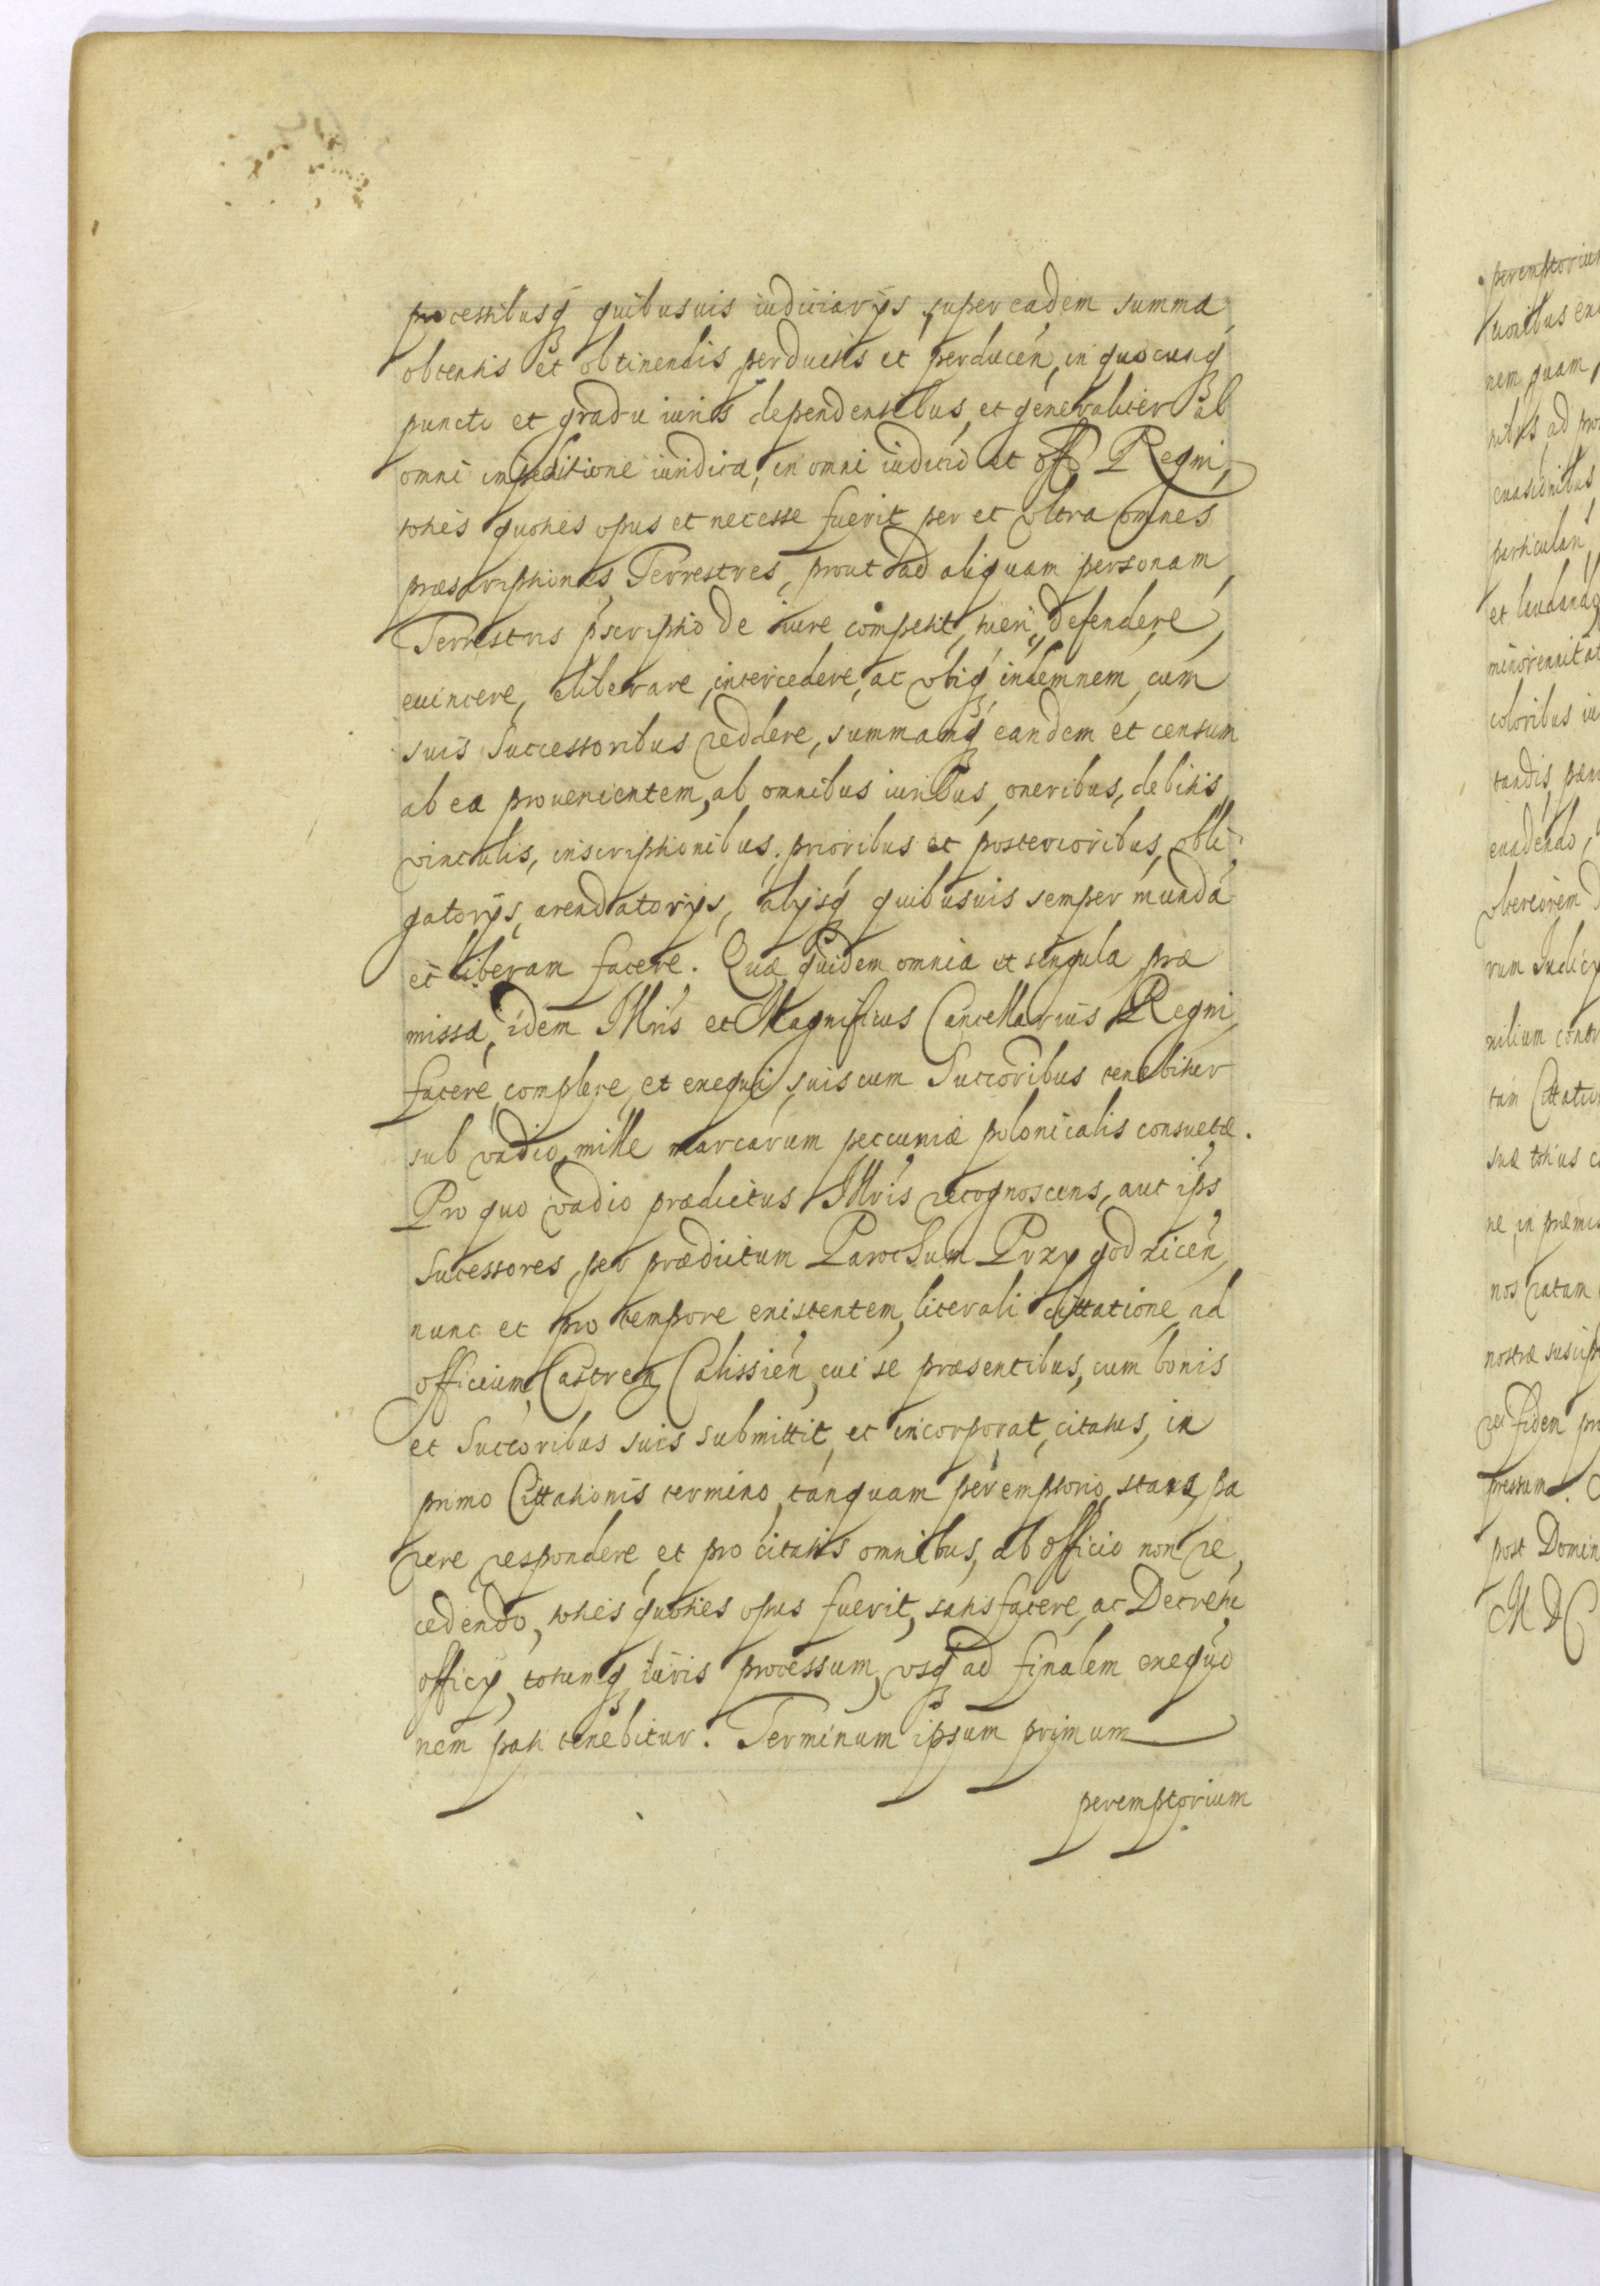 processibusq quibusuis iudiciarÿs, super eadem summa
obtentis et obtinendis, perductis et perducen, in quocunq
puncto et gradu iuris dependentibus, et generaliter ab
omni impeditione iuridica, in omni iudicio et off Regni,
toties quoties opus et necesse fuerit per et vltra omnes
præscriptiones Terrestres, prout ad aliquam personam
Terrestris pscriptio de iure competit, tueri, defendere,
euincere, eliberare, intercedere, ac vbiq indemnem cum
suis Successoribus reddere, summamq eandem et censum
ab ea prouenientem, ab omnibus iuribus, oneribus, debitis
vinculis, inscriptionibus, prioribus et posterioribus, obli
gatorÿs, arendatorÿs, alÿsq quibusuis semper munda
et liberam facere. Quæ quidem omnia et singula præ
missa, idem Illris et Magnificus Cancellarius Regni
facere complere, et exequi, suis cum Succoribus tenebitur
sub vadio mille marcarum peccuniæ polonicalis consuetæ.
Pro quo vadio prædictus Illris recognoscens, aut ips
Sucessores, per prædictum Parochum Przygodzicen
nunc et pro tempore existentem, literali cittatione ad
officium Castren Calissien, cui se præsentibus, cum bonis
et Succoribus suis submittit, et incorporat, citatus, in
primo Cittationis termino, tanquam peremptorio, stare, pa
rere respondere, et pro citatis omnibus, ab officio non re,
cedendo, toties quoties opus fuerit, satisfacere, ac Decretu
officÿ, totumq iuris processum, vsq ad finalem exequo
nem pati tenebitur. Terminum ipsum primum
peremptorium
peremptoriu
nem quam
ad
euasionibus
particulari
et laudanda
coloribus
tandis
euadendo,
vlteriorem
rum Iudicÿ
suæ totius
ne, in præmis
nos ratam
nostræ suscip
et fidem
pressum.
post Domin
M D C